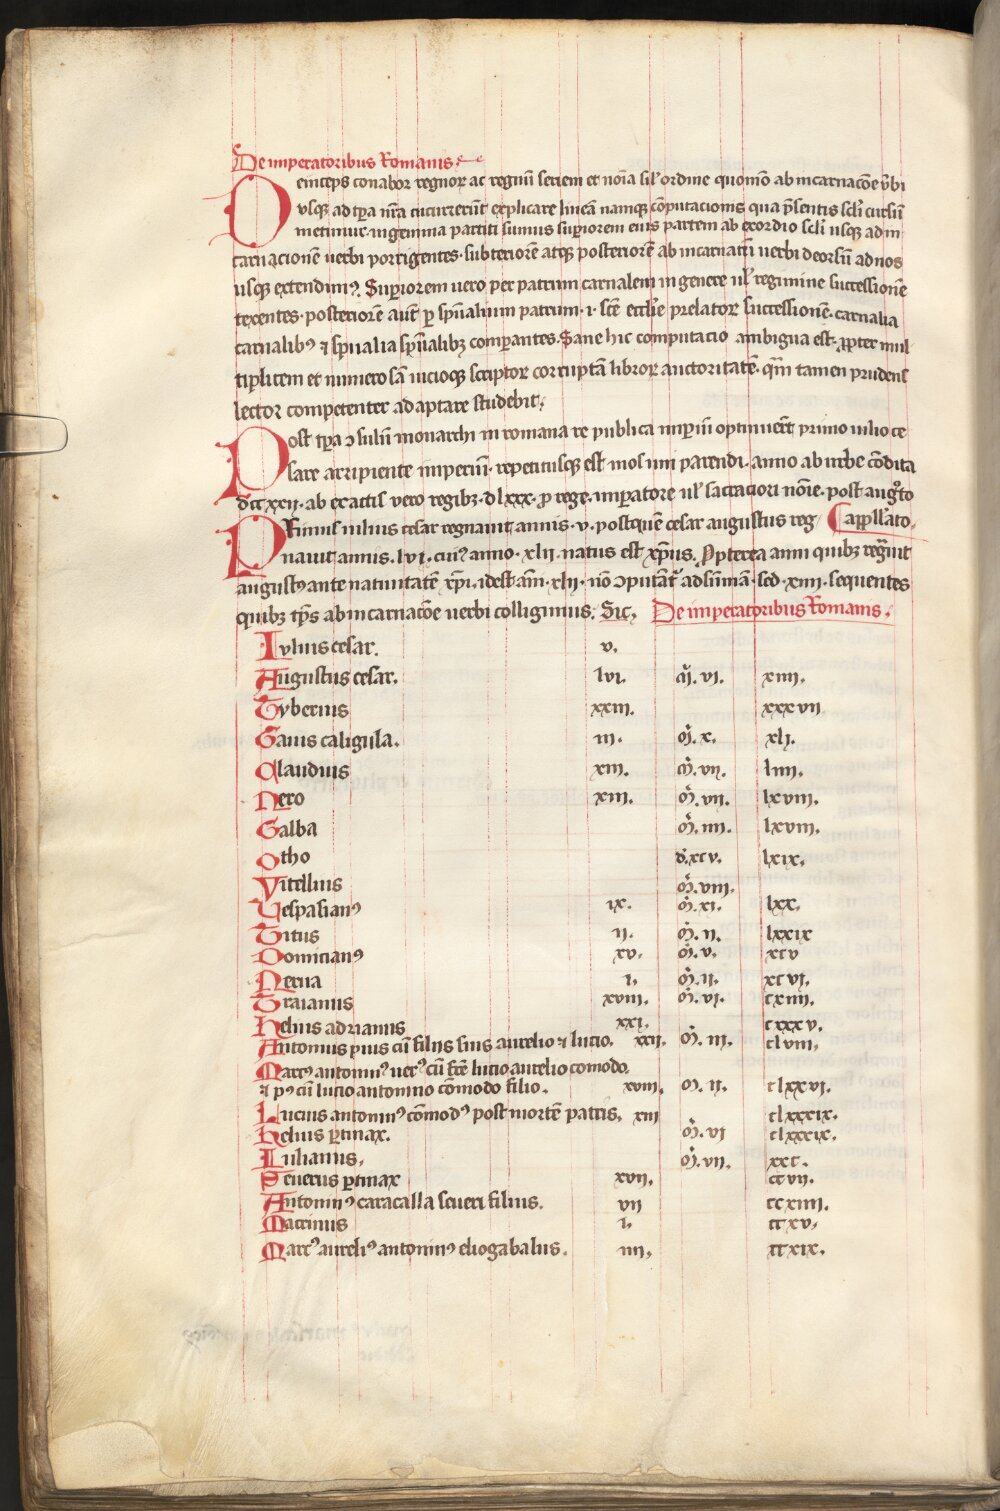 De imperatoribus Romanis
Deinceps conabor regnoꝝ ac regnū seriem et noīa sil' ordine quomō ab incarnacōe v̄bi
vsqꝫ ad tp̄a nr̄a cucurrerūt explicare lineā namqꝫ cōputacionis qua p̄sentis sclī cursū
metimur in gemina partiti sumus supiorem eius partem ab exordio sclī usqꝫ ad in
carnacionē uerbi porrigentes· subteriorē atqꝫ posteriorē ab incarnatī uerbi deorsū ad nos
usqꝫ extendimꝰ. Supiorem uero per patrum carnalem in genere ul' regimine successionē
texentes· posteriorē aut̄ p sp̄ualium patrum ·i· sc̄e eccl'ie prelatoꝝ successionē· carnalia
carnalibꝰ ⁊ sp̄ualia sp̄ualibꝫ comparantes. Sane hic computacio ambigua est· ꝓpter mul
tiplicem et numerosā uicioqꝫ scriptoꝝ corruptā libroꝝ auctoritatē· qm̄ tamen prudens
lector competenter adaptare studebit;
Post tp̄a ↄsulū monarchi in romana re publica impiū optinuerūt primo iulio ce
sare arripiente imperiū· repetitusqꝫ est mos uni parendi· anno ab urbe cōdita
dcc xxij· ab exactis vero regibꝫ· dlxxx· p rege· impatore ul' sacraciori noīe· post augᵒto
Primus iulius cesar regnauit annis· v· postquē cesar augustus reg ( appll'ato.
nauit annis. lvi· cuiꝰ anno· xlii· natus est xp̄us. Ꝓpterea anni quibꝫ regᷓuit
augustꝰ ante natiuitatē xp̄i. idest ām̄· xlii· nō ↄputāt᷑ ad sūmā· sed· xiiii· sequentes
quibꝫ tp̄s ab incarnacōe uerbi colligimus. Sic, De imperatoribus Romanis.
Iulius cesar. v.
Augustus cesar. lvi. m̄. vi. xiiii.
Tyberius xxiii. xxxvii
Gaius caligula. iii. m̄. x. xli.
Claudius xiii. m̄. vii. liiii.
Nero xiii. m̄. vii. lxviii.
Galba m̄. iiii. lxviii.
Otho d̄. xcv. lxix.
Vitellius m̄. viii.
Vespasianꝰ ix. m̄. xi. lxx.
Titus ii. m̄. ii. lxxix
Domicianꝰ xv. m̄. v. xcv
Nerua i. m̄. ii. xcvi.
Traianus xviii. m̄. vi. cxiiii.
Helius adrianus xxi. cxxxv.
Antonius pius cū filiis suis aurelio ⁊ lucio. xxii. m̄. iii. clviii,
Marcꝰ antoninꝰ uerꝰ cū fr̄e lucio aurelio comodo,
⁊ pꝰ cū lucio antonino cōmodo filio. xviii, m̄. ii. clxxvi.
Lucius antoninꝰ cōmodꝰ post mortē patris, xiii clxxxix.
Helius ptinax. m̄. vi clxxxix.
Iulianus, m̄. vii. xxc.
Seuerus ptinax xvii, ccvii.
Antoninꝰ caracalla seueri filius. vii ccxiiii.
Macrinus i. ccxv,
Marcꝰ aureliꝰ antoninꝰ eliogabalus. iiii, ccxix.